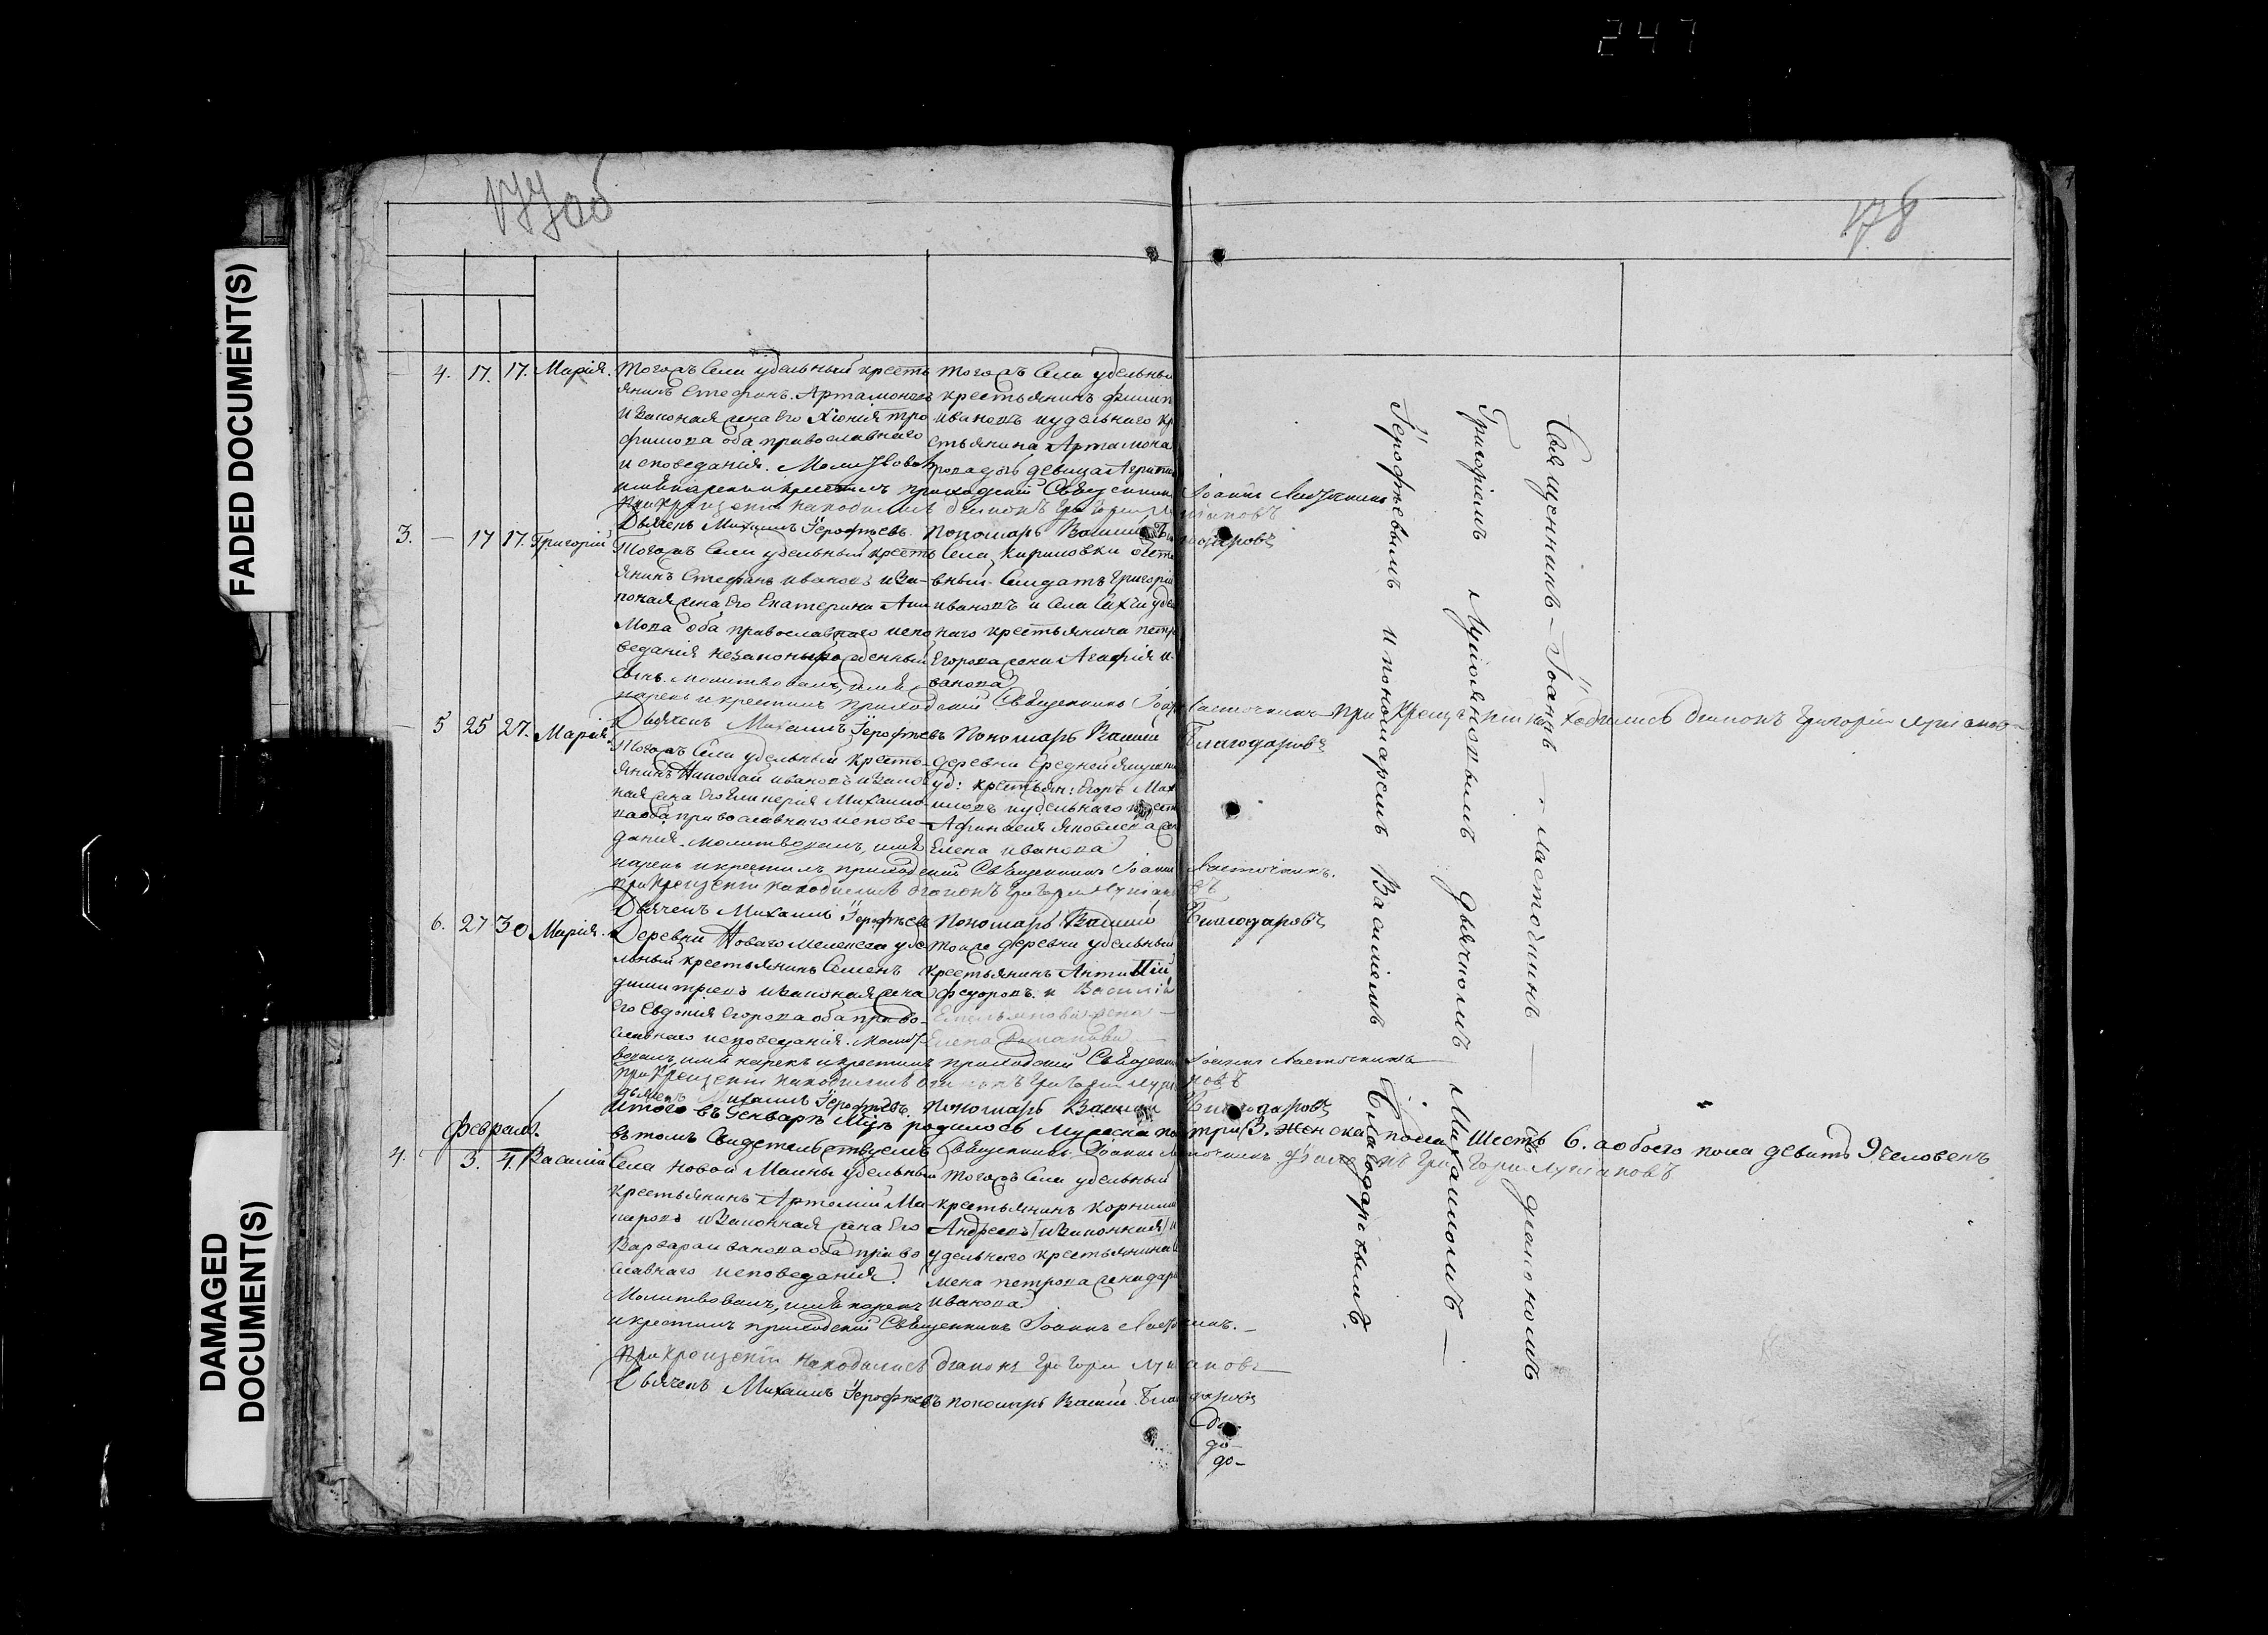 247
177об
178
FADED DOCUMENT(S)
DAMAGED DOCUMENT(S)
4. 17. 17. Марія. Тогожъ Села удѣльный кресть
янинъ Стефанъ Артамоновъ
и законная жена его Хіонія Тро
фимова оба православнаго
исповеданія. Молитвовалъ
имя нарекъ и крестилъ приходскій Священникъ Іоаннъ Ласточкинъ
при крещеніи находились діаконъ Григорій Лукіановъ
Дьячекъ Михаилъ Іерофѣевъ. Пономарь Василій Благодаровъ
тогожъ Села удѣльный
крестьянинъ Филип
Ивановъ и удѣльного кр
стьянина Артамона
дочь девица
3. — 17 17. Григорій Тогожъ Села удѣльный кресть
янинъ Стефанъ Ивановъ и за-
конная жена его Екатерина
оба православнаго испо
веданія незаконнорожденный
сынъ. Молитвовалъ, имя
нарекъ и крестилъ приходскій Священникъ Іоаннъ Ласточкинъ при крещеніи находились діаконъ Григорій Лукіановъ
Дьячекъ Михаилъ Іерофѣевъ Пономарь Василій Благодаровъ
Села Кириловки
Солдатъ Григорій
Ивановъ и Села
наго крестьянина Петра
Егорова жена Агафія И-
ванова
5 25 27. Марія Тогожъ Села удѣльный кресть-
янинъ Николай Ивановъ и закон
ная жена его Гликерія Михаило
ва оба православнаго испове-
данія. Молитвовалъ, имя
нарекъ и крестилъ приходскій Священникъ Іоаннъ Ласточкинъ.
при крещеніи находились діаконъ Григорій Лукіановъ
Дьячекъ Михаилъ Іерофѣевъ Пономарь Василій Благодаровъ
деревни Средней
уд: крестьян: Егоръ Мах
имовъ и удѣльнаго крест
Афанасія Яковлева жен
Елена Иванова
6. 27 30 Марія. Деревни Новаго Мелекеса удѣ
льный крестьянинъ Семенъ
Димитріевъ и законная жена
его Евдокія Егорова оба право-
славнаго исповеданія. Молит
вовалъ, имя нарекъ и крестилъ приходскій Священникъ Іоаннъ Ласточкинъ
при крещеніи находились діаконъ Григорій Лукіановъ
дьячекъ Михаилъ Іерофѣевъ. Пономарь Василій Благодаровъ
тоже деревни удѣльный
крестьянинъ Антипій
Федоровъ. и Василія
Емельянова жена
Елена Романова
Итого въ Генварѣ Мцѣ родилось Мужеска пола три 3. женска пола шесть 6. а обоего пола девять 9 человекъ
въ томъ Свидетельствуемъ Священникъ Іоаннъ Ласточкинъ діаконъ Григорій Лукіановъ
Февраль.
4. 3. 4. Василій Села Новой Маины удѣльный
крестьянинъ Артемій Ма-
каровъ и законная жена его
Варвара Иванова оба право
славнаго исповеданія.
Молитвовалъ, имя нарекъ
и крестилъ приходскій Священникъ Іоаннъ Ласточкинъ.
При крещеніи находились діаконъ Григорій Лукіановъ
Дьячекъ Михаилъ Іерофѣевъ пономарь Василій Благодаровъ
тогожъ Села удѣльный
крестьянинъ Корнилій
Андреевъ
удѣльного крестьянина
Петрова жена Дарья
Иванова
до-
до-
Священникъ – Іоаннъ – Ласточкинъ — съ діакономъ
Григоріемъ Лукіановымъ дьячкомъ Михаиломъ —
Іерофѣевымъ и пономаремъ Василіемъ Благодаровымъ